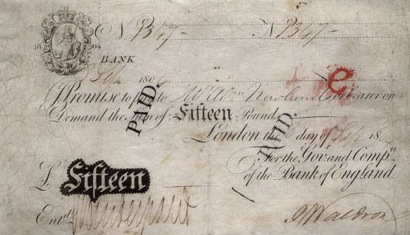 No. B347 No. B347
BANK
I Promise to pay to Mr. Abm. Newland or bearer on
Demand the Sum of Fifteen Pounds
London the day of 18
For the Gov. and Compa.
£ Fifteen of the Bank of England
Entd.
PAID.
PAID.